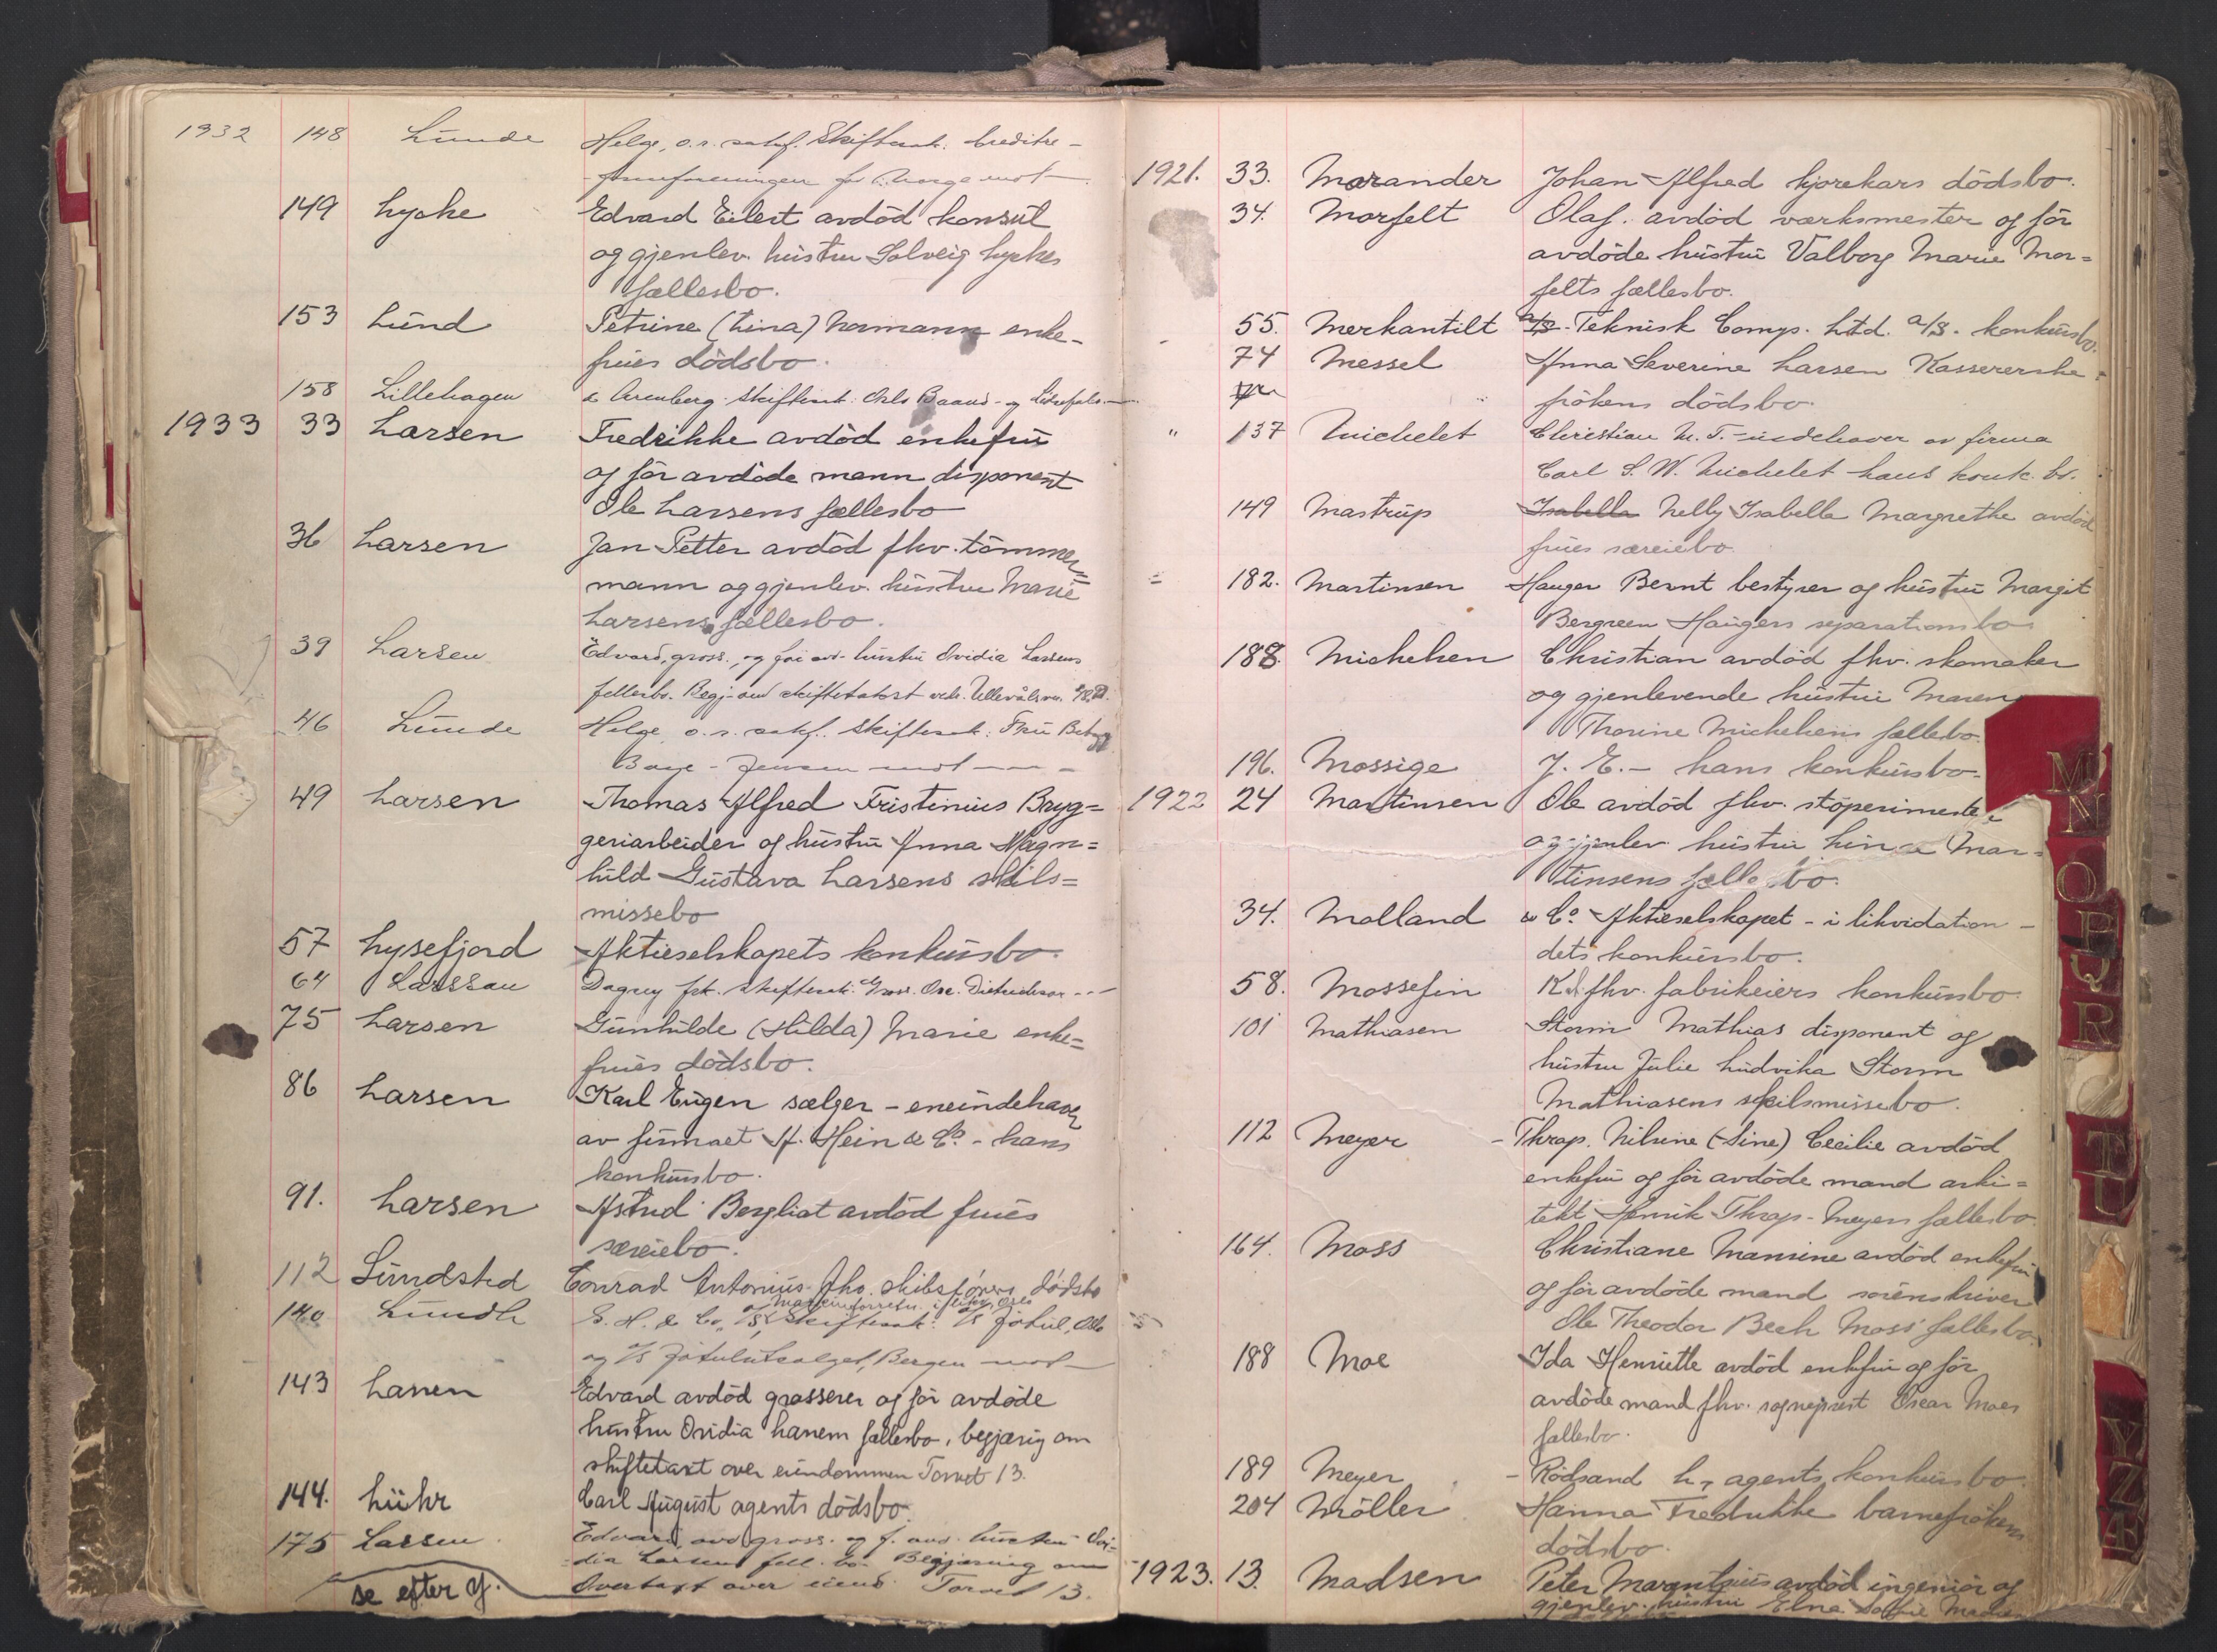 1932 148 Lunde Helge, o.r. sakf. Skiftesak: Creditre-
formforeningen for Norge mot
149 Lycke Edvard Eilert avdöd konsul
og gjenlev. hustru Solveig Lyckes
fællesbo.
153 Lund Petrine (Lina) Normann enke-
frues dödsbo.
158 Lillehagen & Arenberg. Skiftesak: Oslo
1933 33 Larsen Fredrikke avdöd enkefru
og för avdöde mann disponent
Ole Larsens fællesbo
36 Larsen Jan Petter avdöd fhv. tömmer=
mann og gjenlev. hustru Marie
Larsens fællesbo.
39 Larsen Edvard, gross., og för avd. hustru Ovidia Larsens
fellesbo. Begj. om skiftetakst vedr. Ullevålsvn.
46 Lunde Helge o.r. sakf. Skiftesak: Fru Betzy
Bage-Jensen mot
49 Larsen Thomas Alfred Tristinius Bryg=
geriarbeider og hustru Anna Magn=
hild Gustava Larsens skils=
missebo
57 Lysefjord Aktieselskapets konkursbo.
64 Larssau Dagny frk. skiftesak: Gross. Osc. Dietrichson
75 Larsen Gunhilde (Hilda) Marie enke=
frues dödsbo.
86 Larsen Karl Eugen sælger - eneindehaver
av firmaet H. Hein & Co. - hans
konkursbo.
91. Larsen Astrid Bergliot avdöd frues
særeiebo.
112 Lundsted Conrad Antonius fhv. skibsförers dödsbo
140 Lundh S. H. & Co., A/S, Skiftesak: A/S Jøtul, Oslo
og Maskinforretn.
og A/S Jøtulutsalget, Bergen mot
143 Larsen Edvard avdöd grosserer og för avdøde
hustru Ovidia Larsens fællesbo, begjæring om
skiftetakst over eiendommen Torvet 13.
144. Lühr Carl August agents dödsbo.
175 Larsen Edvard, avd. gross. og f. avd. hustru Ovi-
dia Larsens fell. bo. Begjæring om
Overtakst over eiend. Torvet 13.
se efter Y.
1921. 33. Morander Johan Alfred kjörekars dödsbo.
34. Morfelt Olaf. avdöd værksmester og för
avdöde hustru Valborg Marie Mor=
felts fællesbo.
55. Merkantilt A/S - Teknisk Comp. Ltd. A/S. konkursbo.
74 Messel Anna Severine Larsen Kassererske
frökens dödsbo.
" 137 Michelet Christian M. T. - indehaver av firma
Carl S. W. Michelet hans konk. bo.
149 Mastrup Isabella Nelly Isabella Margrethe avdöd
frues særeiebo.
182. Martinsen Hauger Bernt bestyrer og hustru Margit
Bergreen Haugers separationsbo
188. Michelsen Christian avdöd fhv. skomaker
og gjenlevende hustru Maren
Thorine Michelsens fællesbo.
196. Mossige J. E. - hans konkursbo.
1922 24 Martinsen Ole avdöd fhv. støperimester
og gjenlev. hustru Lina Mar=
tinsens fællesbo.
34. Molland & Co. Aktieselskapet - i likvidation -
dets konkursbo.
58. Mossefin K. fhv. fabrikeiers konkursbo.
101 Mathiasen Storm Mathias disponent og
hustru Julie Ludvika Storm
Mathiasens skilsmissebo.
112 Meyer - Thrap. Nilsine (Sine) Cecilie avdöd
enkefru og för avdöde mand arki=
tekt Henrik Thrap-Meyers fællesbo.
164. Moss Christiane Mamine avdöd enkefru
og för avdöde mand sorenskriver
Ole Theodor Bech Moss' fællesbo.
188 Moe Ida Henriette avdöd enkefru og för
avdöde mand fhv. sogneprest Oscar Moes
fællesbo.
189 Meyer - Rödsand L., agents konkursbo.
204 Möller Hanna Fredrikke barnefrökens
dödsbo.
1923. 13. Madsen Peter Marentsius avdöd ingeniör og
gjenlev. hustru Elna Sofie Madsens
M
N
O
P
Q
R
T
U
Y
Z
Æ